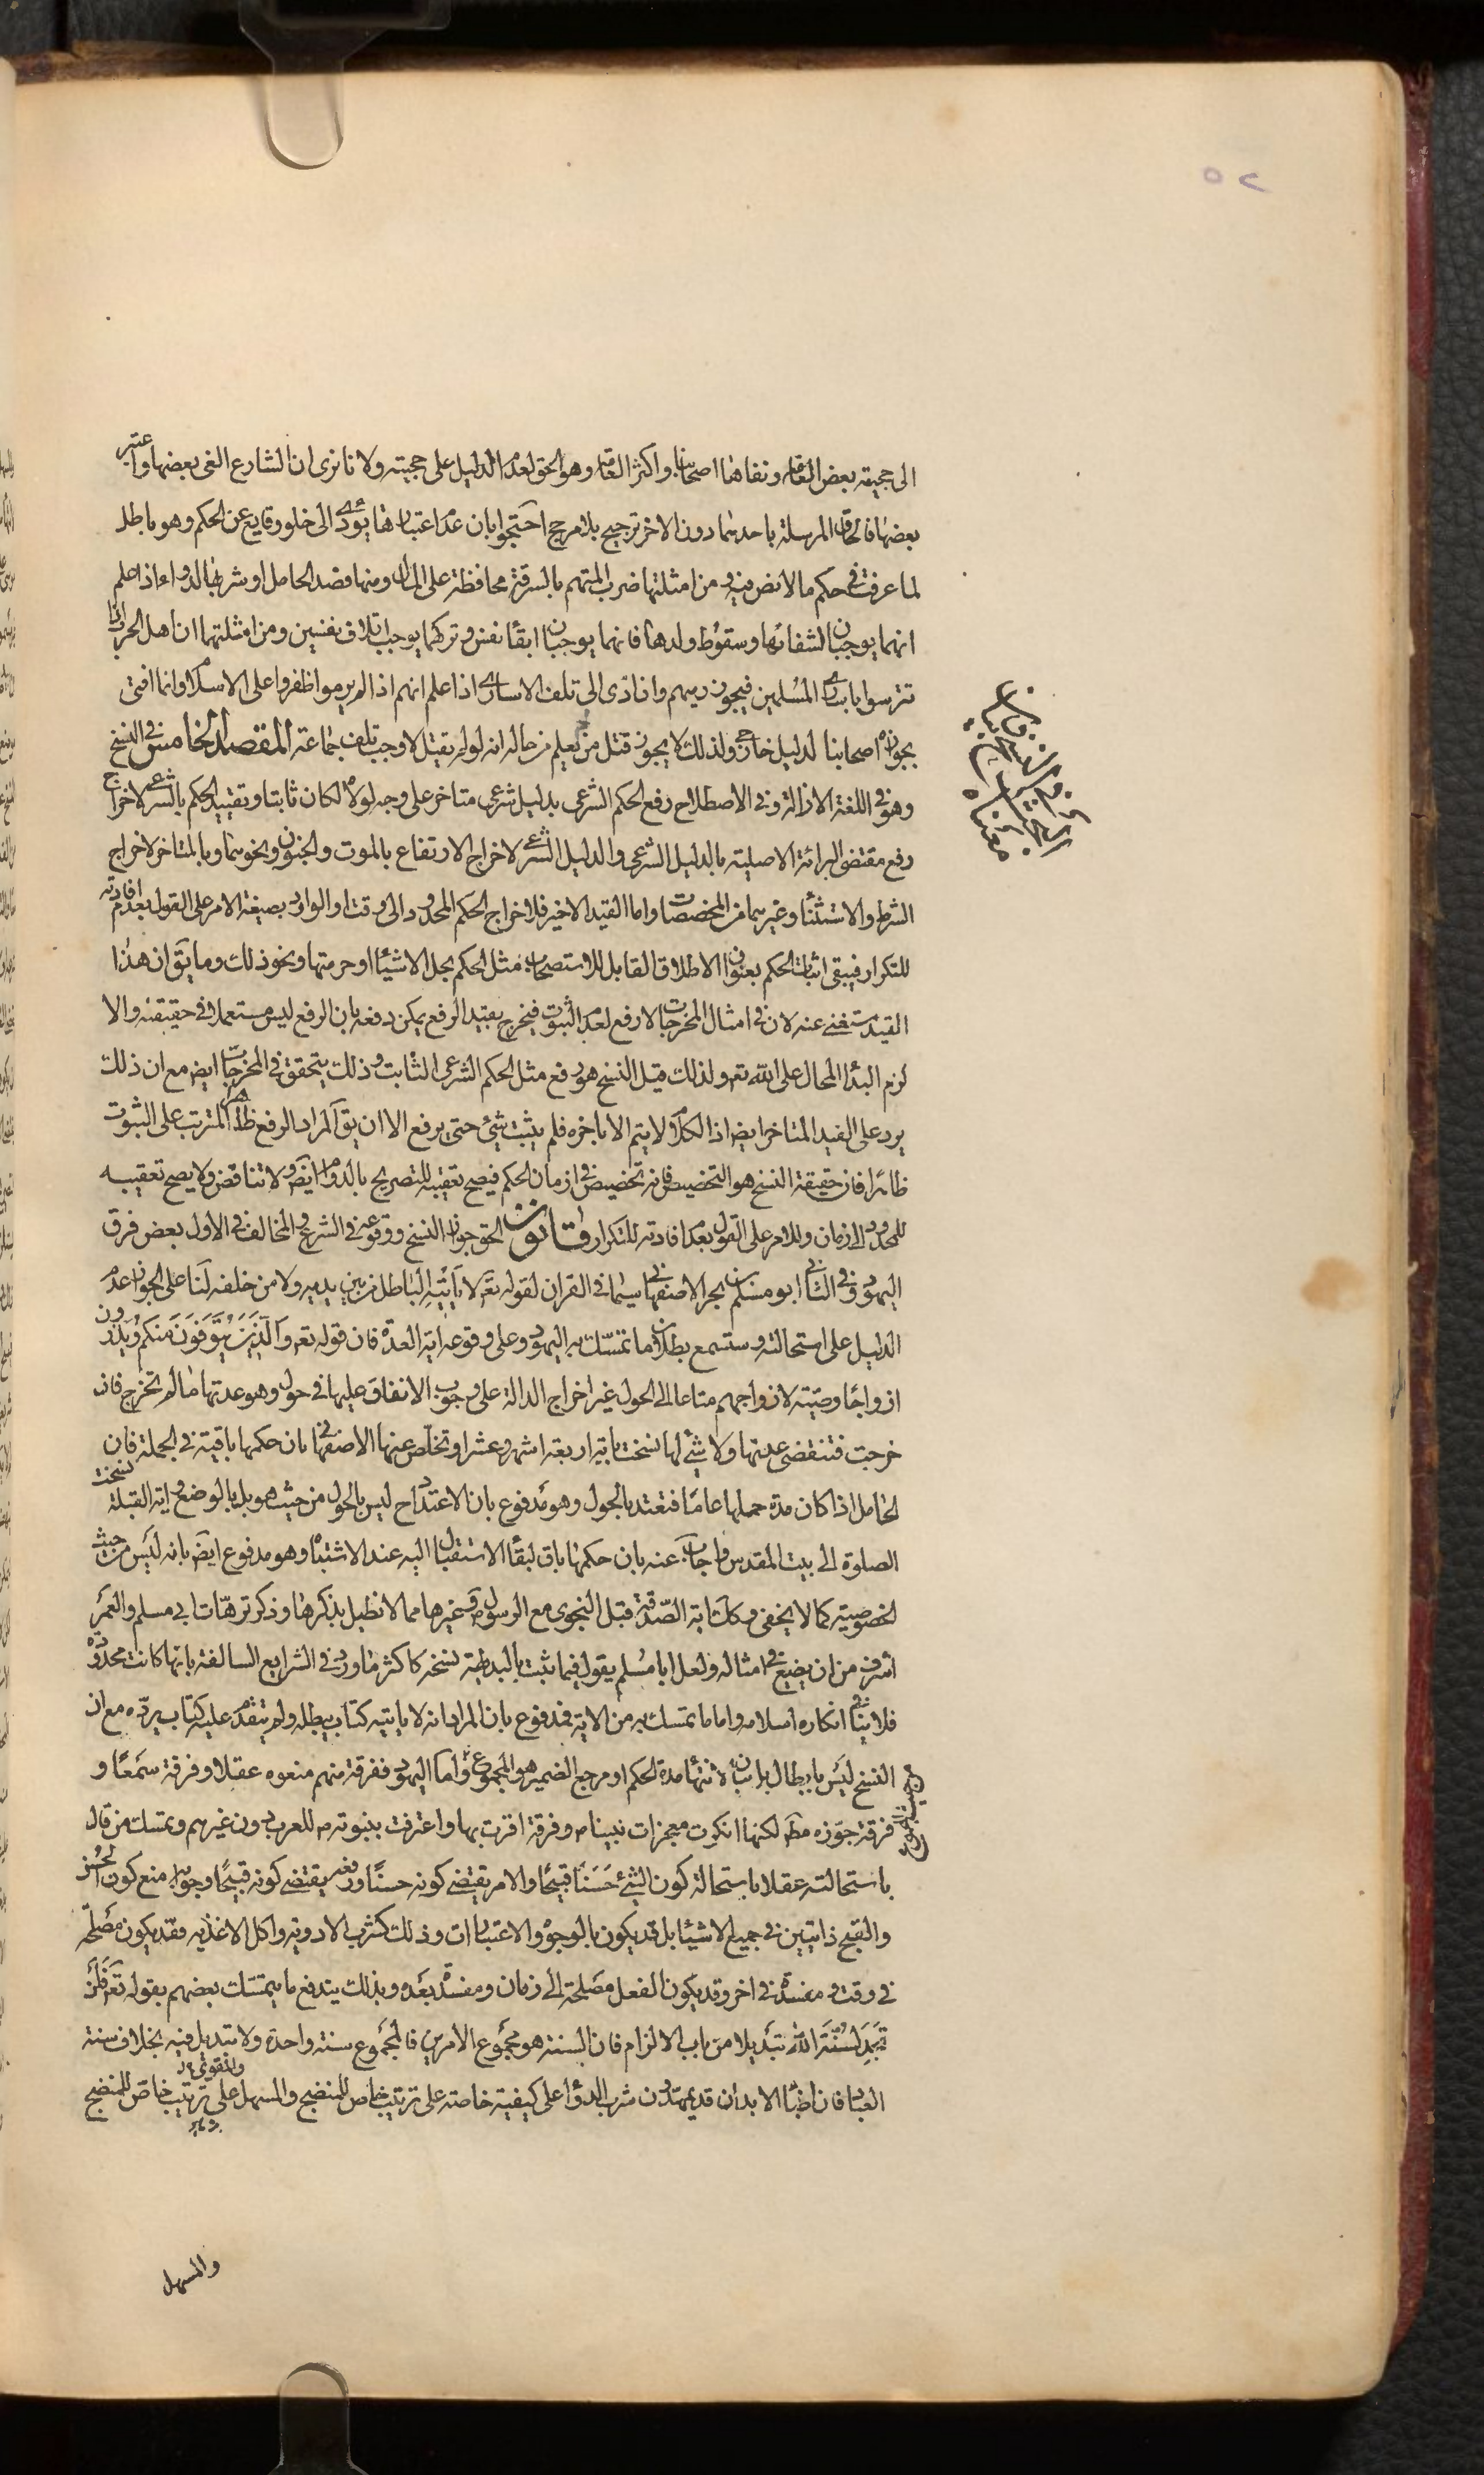 ٥٢
الى حجيته بعض العامه ونفاها اصحابنا واكثر العامه وهو الحق لعدم الدليل على حجيته ولانا نرى ان الشارع الغى بعضها واعتبر
بعضها فالحاق المرسلة باحدهما دون الاخر ترجيح بلا مرجح احتجوا بان عدم اعتبارها يؤدى الى خلو وقايع عن الحكم وهو باطل
لما عرفت فى حكم ما لا نص فيه ومن امثلتها ضرب المتهم بالسرقة محافظة على المال ومنها فصد الحامل او شربها الدواء اذا علم
انهما يوجبان لشفائها وسقوط ولدها فانهما يوجبان ابقاء نفس وتركهما يوجب اتلاف نفسين ومن امثلتهما ان اهل الحرب اذا
تترسوا باسارى المسلمين فيجوز رميهم وان ادى الى تلف الاسارى اذا علم انهم اذا لم يرموا ظفروا على الاسلام وانما افتى
بجوازه اصحابنا لدليل خارجى ولذلك لا يجوز قتل من يعلم من حاله انه لو لم يقتل لاوجب تلف جماعة المقصد الخامس فى النسخ
وهو فى اللغة الازالة وفى الاصطلاح رفع الحكم الشرعى بدليل شرعى متاخر على وجه لولاه لكان ثابتا وتقييد الحكم بالشرعى لاخراج
رفع مقتضى البرائة الاصلية بالدليل الشرعى والدليل الشرعى لاخراج الارتفاع بالموت والجنون ونحوهما وبالمتاخر لاخراج
الشرط والاستثناء وغيرهما من المخصصات واما القيد الاخير فلاخراج الحكم المحدود الى وقت او الوارد بصيغة الامر على القول بعدم افادته
للتكرار فيبقى اثبات الحكم بعنوان الاطلاق القابل للاستصحاب مثل الحكم بحل الاشياء او حرمتها ونحو ذلك وما يق ان هذا
القيد مستغنى عنه لان فى امثال المخرجات لا رفع لعدم الثبوت فيخرج بقيد الرفع يمكن دفعه بان الرفع ليس مستعملا فى حقيقته والا
لزم البدأ المحال على الله تع ولذلك قيل النسخ هو رفع مثل الحكم الشرعى الثابت وذلك يتحقق فى المخرجات ايض مع ان ذلك
يرد على القيد المتاخر ايض اذ الكلام لا يتم الا باخره فلم يثبت شئ حتى يرفع الا ان يق المراد الرفع ظاهرا المترتب على الثبوت
ظاهرا فان حقيقة النسخ هو التخصيص فانه تخصيص فى ازمان الحكم فيصح تعقيبه للتصريح بالدوام ايض ولا تناقض ولا يصح تعقيبه
للمحدود الى زمان وللامر على القول بعدم افادته للتكرار قانون الحق جواز النسخ ووقوعه فى الشرع والمخالف فى الاول بعض فرق
اليهود وفى الثانى ابو مسلم بن بحر الاصفهانى سيما فى القران لقوله تع لا يأتيه الباطل من بين يديه ولا من خلفه لنا على الجواز عدم
الدليل على استحالته وستسمع بطلان ما تمسك به اليهود وعلى وقوعه اية العدة فان قوله تع والذين يتوفون منكم ويذرون
ازواجا وصية لازواجهم متاعا الى الحول غير اخراج الدالة على وجوب الانفاق عليها فى حول وهو عدتها ما لم تخرج فان
خرجت فتنقضى عدتها ولا شئ لها نسخت باية اربعة اشهر وعشرا وتخلص عنها الاصفهانى بان حكمها باقية فى الجملة فان
الحامل اذا كان مدة حملها عاما فتعتد بالحول وهو مدفوع بان الاعتداد ح ليس بالحول من حيث هو بل بالوضع واية القبلة نسخت
الصلوة الى بيت المقدس واجاب عنه بان حكمها باق لبقاء الاستقبال اليه عند الاشتباه وهو مدفوع ايض بانه ليس من حيث
الخصوصية كما لا يخفى وكك اية الصدقة قبل النجوى مع الرسول ص وغيرها مما لا نطيل بذكرها وذكر ترهات ابى مسلم والعمر
اشرف من ان يضيع فى امثاله ولعل ابا مسلم يقول فيما يثبت بالبديهة نسخه كاكثر ما ورد فى الشرايع السالفة بانها كانت محدودة
فلا ينافى انكاره اسلامه واما ما تمسك به من الاية فمدفوع بان المراد انه لا ياتيه كتاب يبطله ولم يتقدم عليه كتاب يرده مع ان
النسخ ليس بابطال بل بيان لانتهاء مدة الحكم او مرجع الضمير هو المجموع واما اليهود ففرقة منهم منعوه عقلا وفرقة سمعا و
فرقة جوزه مط لكنها انكرت معجزات نبينا ص وفرقة اقرت بها واعترفت بنبوته ص للعرب دون غيرهم وتمسك من قال
باستحالته عقلا باستحالة كون الشئ حسنا قبيحا والامر يقتضى كونه حسنا ورفعه يقتضى كونه قبيحا وجوابه منع كون الحسن
والقبح ذاتيين فى جميع الاشياء بل قد يكون بالوجوه والاعتبارات وذلك كشرب الادوية واكل الاغذيه فقد يكون مصلحة
فى وقت ومفسدة فى اخر وقد يكون الفعل مصلحة الى زمان ومفسدة بعده وبذلك يندفع ما يتمسك بعضهم بقوله تع فلن
تجد لسنة الله تبديلا من باب الالزام فان السنة هو مجموع الامرين فالمجموع سنة واحدة ولا تبديل فيه بخلاف سنة
العباد فان اطباء الابدان قد يمهدون شرب الدواء على كيفية خاصة على ترتيب خاص للمنضج والمسهل على ترتيب خاص للمنضج
والمسهل